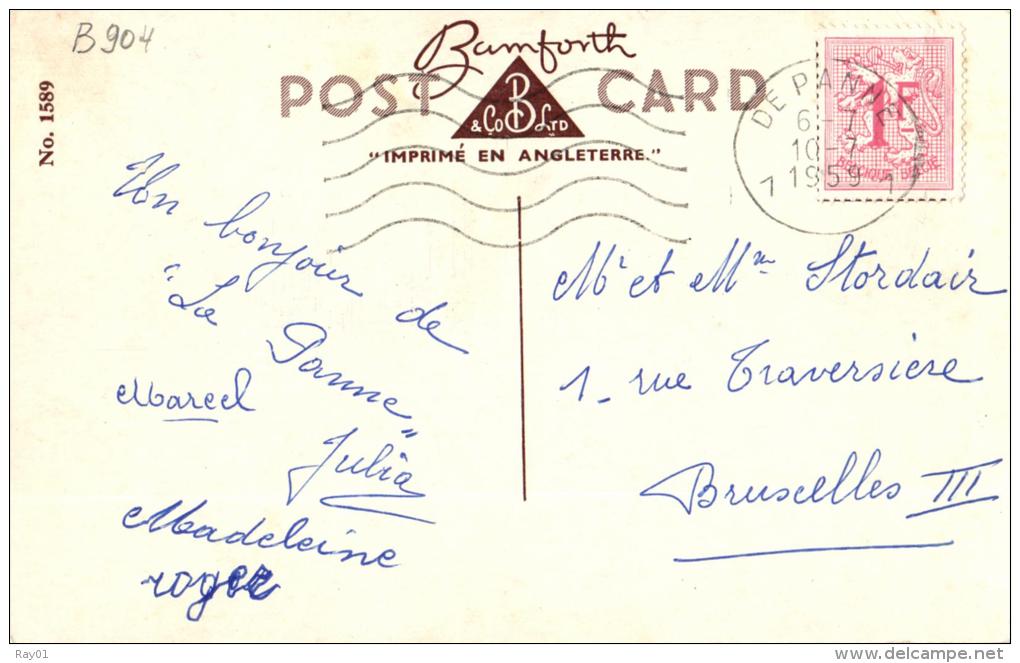 B904
No. 1589
Bamforth
POST CARD
B
& Co LTD
"IMPRIMÉ EN ANGLETERRE."
DE PANNE
6-7
10-7
1959
1 1
1F
BELGIQUE BELGIË
Un bonjour de
"La Panne"
Marcel
Julia
Madeleine
roger
Mr et Mme Stordair
1, rue Traversière
Bruxelles III
Ray01
delcampe.net